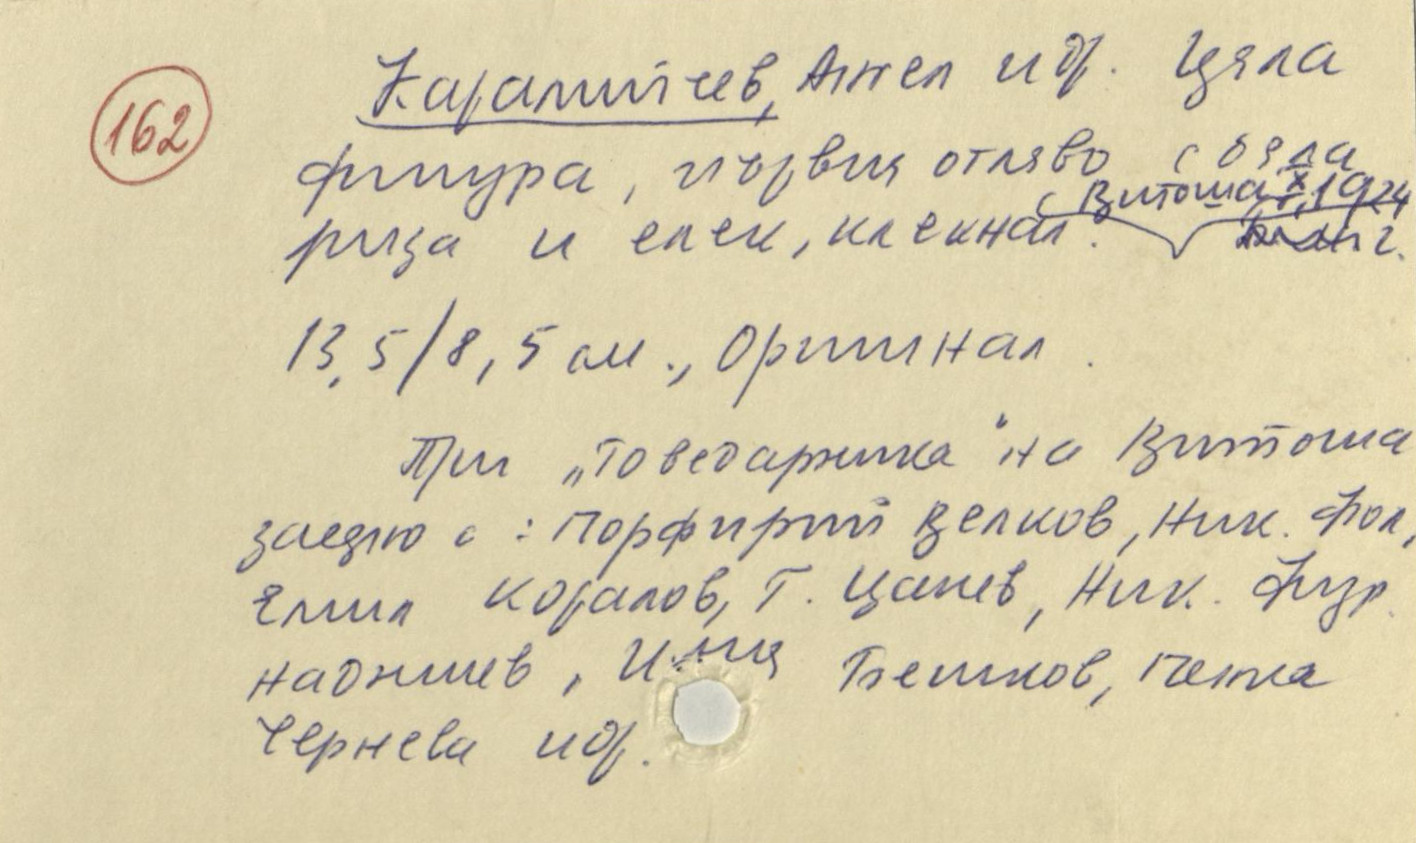 162
Каралийчев, Ангел и др. Цяла
фигура, първия отляво с бяла
Витоша, X. 1924
риза и елек, клекнал. г.
13,5/8,5 см., Оригинал.
При "Говедарника" на Витоша
заедно с: Порфирий Велков, Ник. Фол,
Емил Коралов, Г. Цанев, Ник. Фур
наджиев, Илия Бешков, Пенка
Чернева и др.